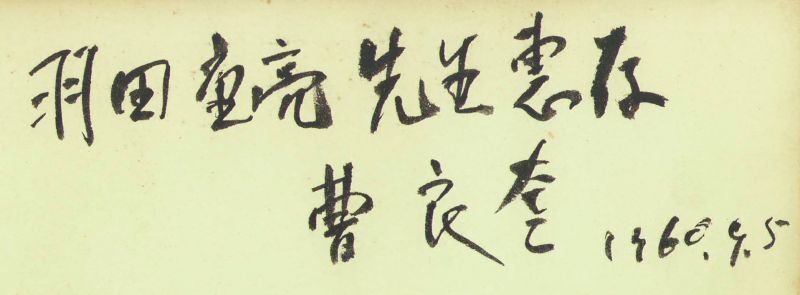 羽田重亮 先生惠存
曹良奎 1960.9.5